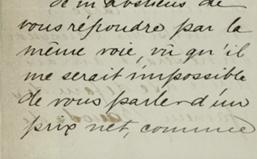 Je m'abstiens de
vous répondre par la
même voie, vû qu'il
me serait impossible
de vous parler d'un
prix net, comme